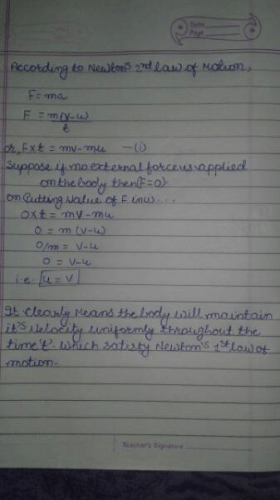 Date
Page
According to Newton's 2nd law of Motion,
F = ma
F = m(v-u)/t
or, F×t = mv-mu —(i)
Suppose if no external force is applied
on the body then (F=0)
on Putting value of F in (i)...
0×t = mv-mu
0 = m(v-u)
0/m = v-u
0 = v-u
i.e. u = v
It clearly means the body will maintain
it's velocity uniformly throughout the
time 't' which satisfy Newton's 1st law of
motion.
Teacher's Signature